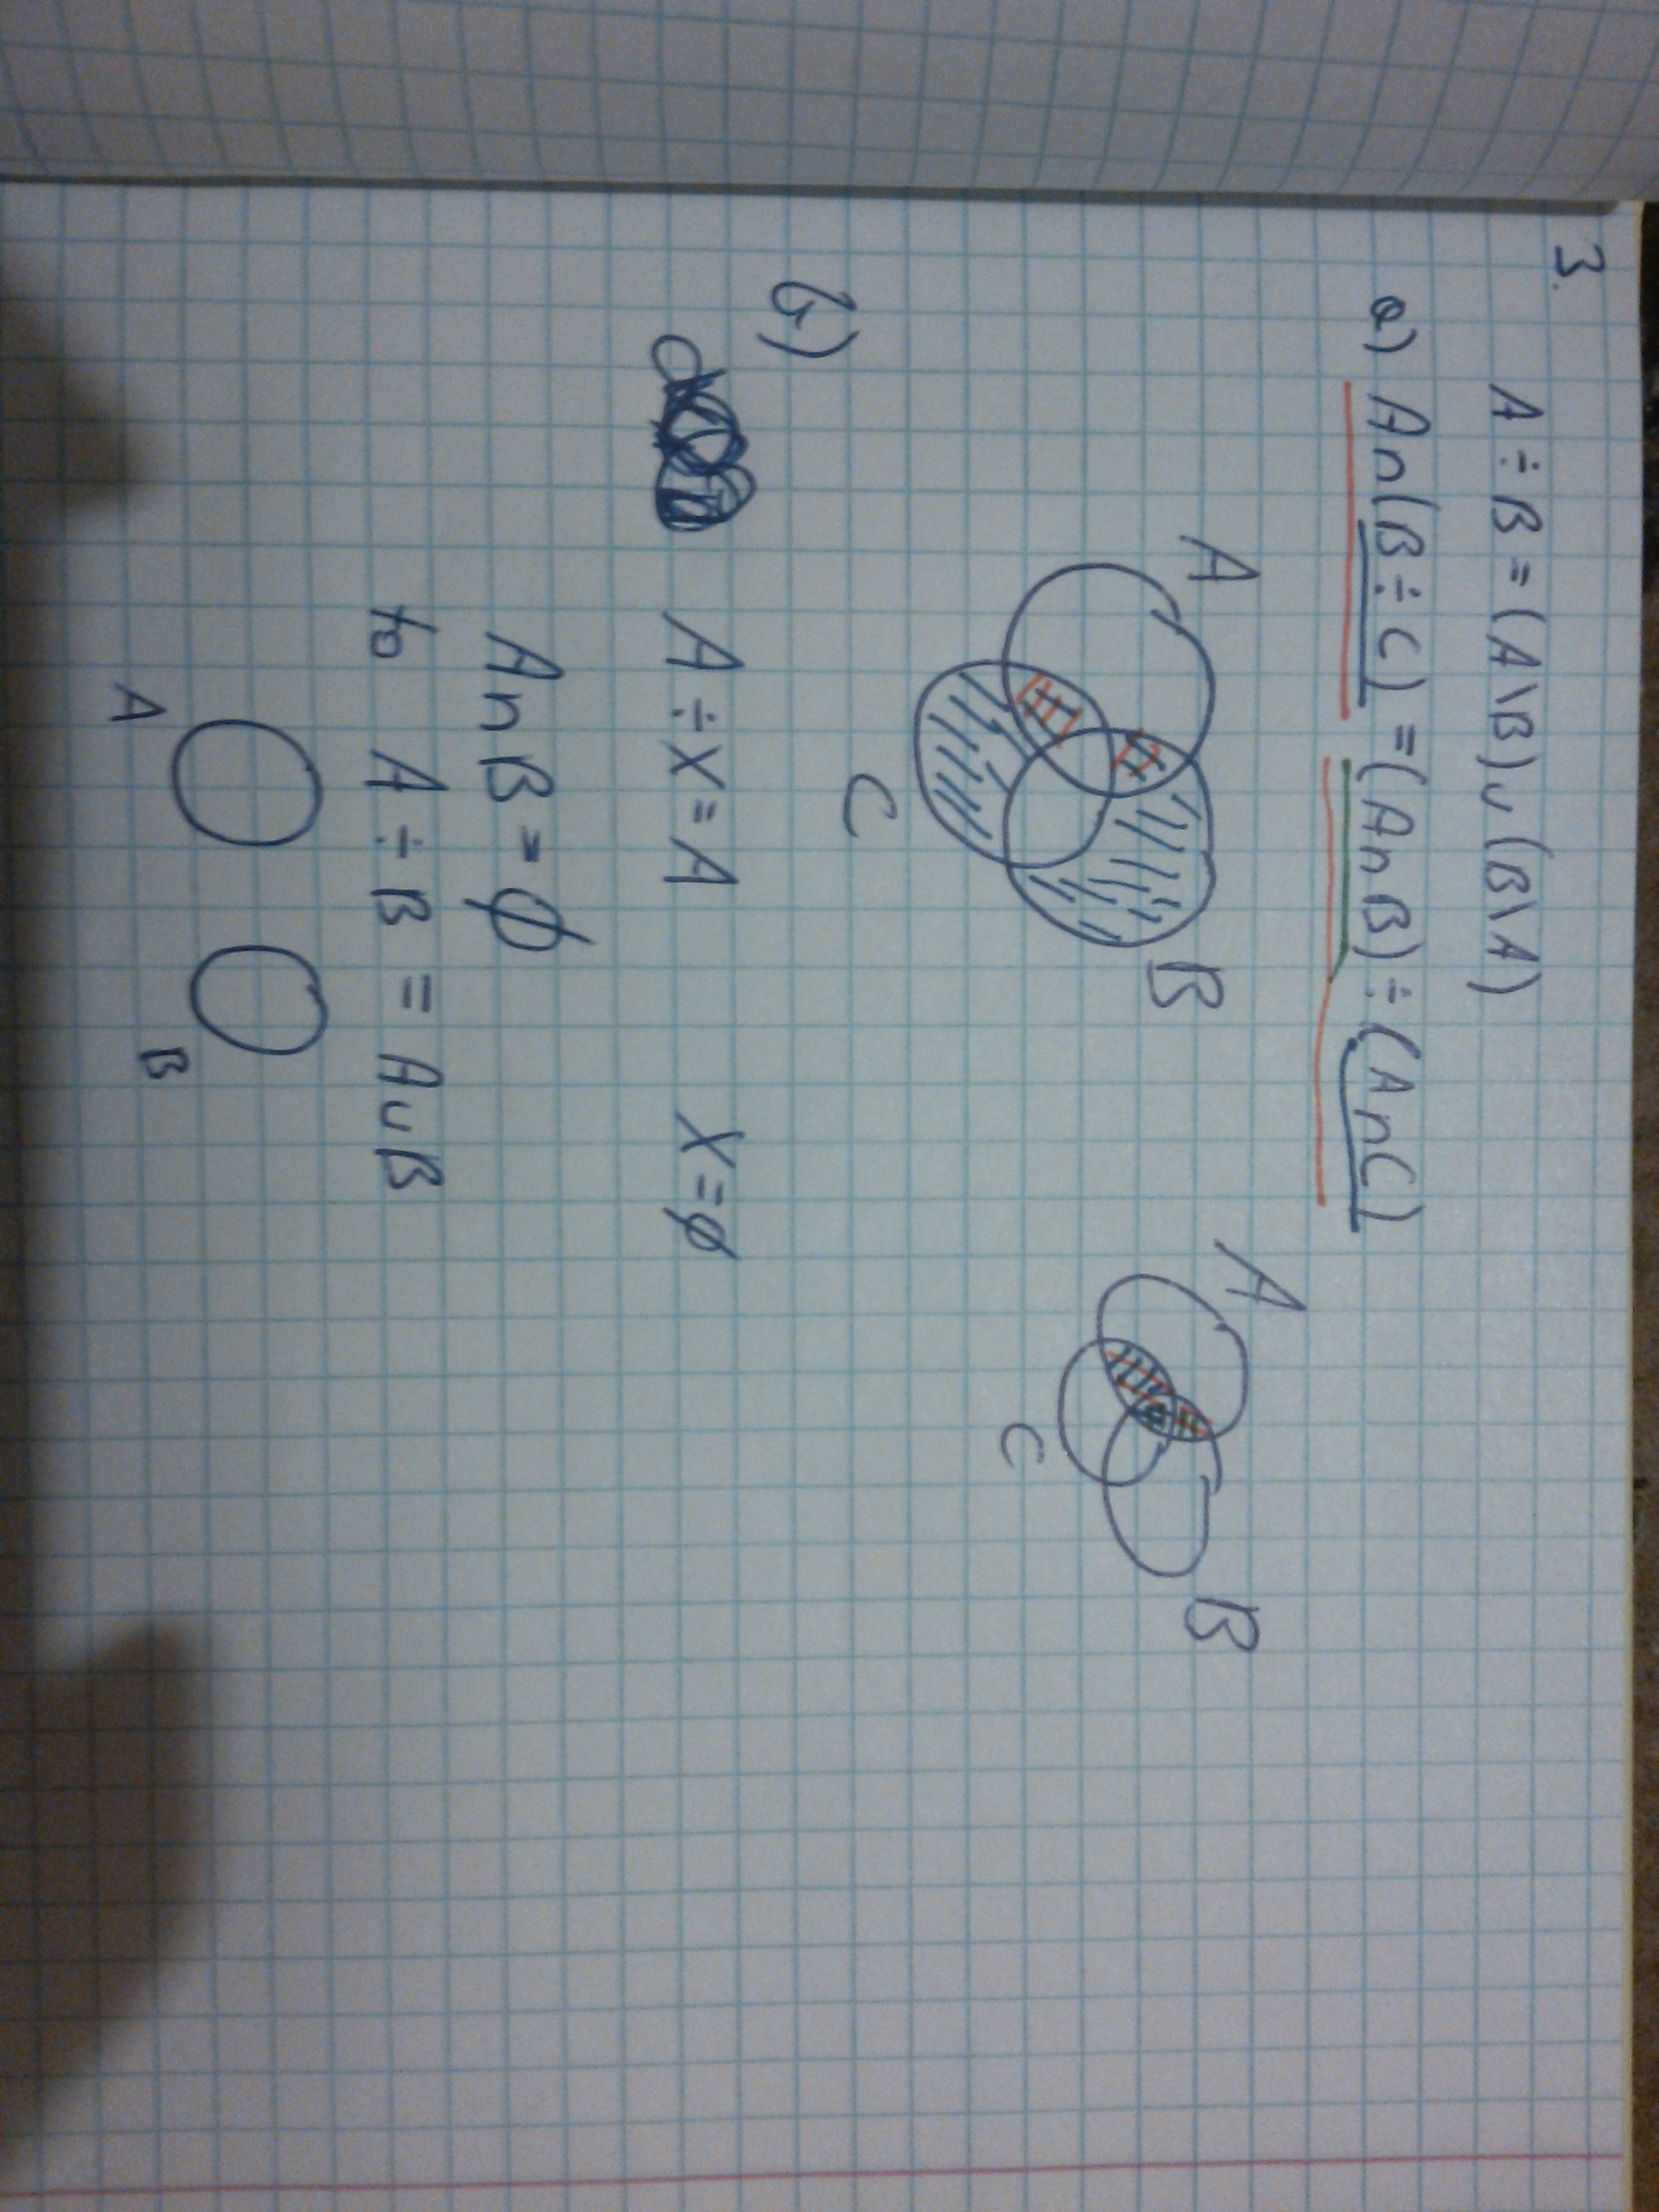 3.
A ÷ B = (A \ B) ∪ (B \ A)
a) A∩(B ÷ C) = (A∩B) ÷ (A∩C)
A B A B
C C
b)
A ÷ X = A X = ∅
A∩B = ∅
to A ÷ B = A∪B
A B